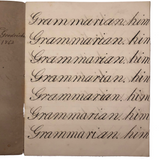 Grammarian. him
Grammarian. him
Grammarian. him
Grammarian. him
Grammarian. him
Grammarian. him
Grammarian. him